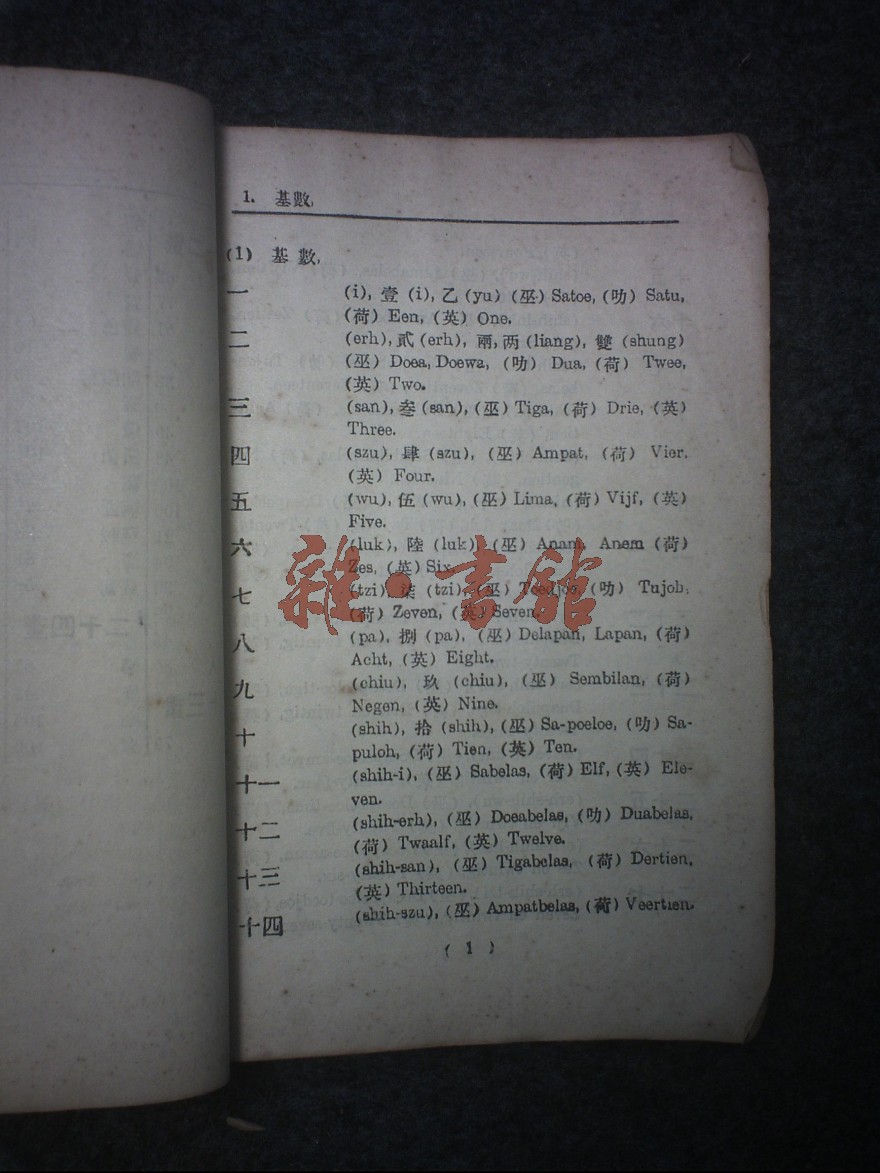 1. 基數,
(1) 基 數,
一 (i), 壹 (i), 乙 (yu) (巫) Satoe, (叻) Satu,
(荷) Een, (英) One.
二 (erh), 貳 (erh), 兩, 両 (liang), 雙 (shung)
(巫) Doea, Doewa, (叻) Dua, (荷) Twee,
(英) Two.
三 (san), 叁 (san), (巫) Tiga, (荷) Drie, (英)
Three.
四 (szu), 肆 (szu), (巫) Ampat, (荷) Vier.
(英) Four.
五 (wu), 伍 (wu), (巫) Lima, (荷) Vijf, (英)
Five.
六 (luk), 陸 (luk), (巫) Anam, Anem (荷)
Zes, (英) Six.
七 (tzi), 柒 (tzi), (巫) Toedjoe, (叻) Tujoh,
(荷) Zeven, (英) Seven.
八 (pa), 捌 (pa), (巫) Delapan, Lapan, (荷)
Acht, (英) Eight.
九 (chiu), 玖 (chiu), (巫) Sembilan, (荷)
Negen, (英) Nine.
十 (shih), 拾 (shih), (巫) Sa-poeloe, (叻) Sa-
puloh, (荷) Tien, (英) Ten.
十一 (shih-i), (巫) Sabelas, (荷) Elf, (英) Ele-
ven.
十二 (shih-erh), (巫) Doeabelas, (叻) Duabelas,
(荷) Twaalf, (英) Twelve.
十三 (shih-san), (巫) Tigabelas, (荷) Dertien,
(英) Thirteen.
十四 (shih-szu), (巫) Ampatbelas, (荷) Veertien.
( 1 )
雜·書館